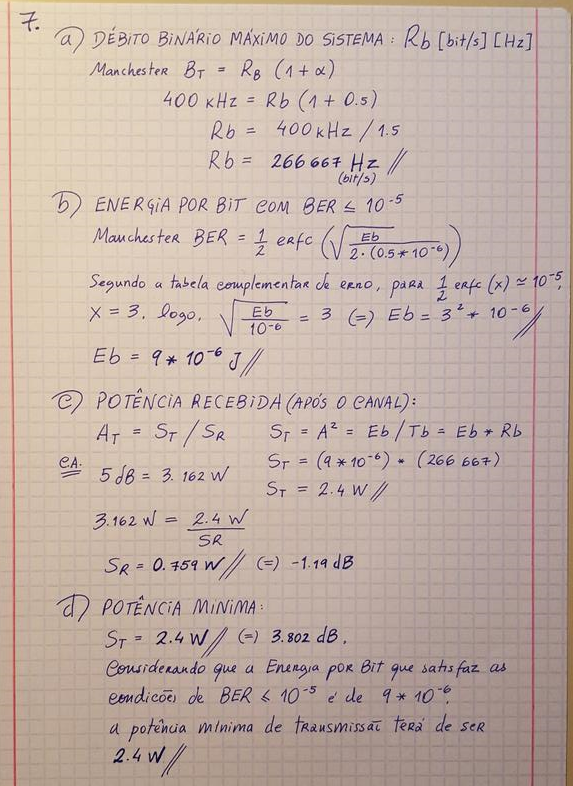 7.
a) DÉBITO BINÁRIO MÁXIMO DO SISTEMA: Rb [bit/s] [Hz]
Manchester B_T = R_B (1 + α)
400 kHz = Rb (1 + 0.5)
Rb = 400 kHz / 1.5
Rb = 266 667 Hz //
(bit/s)
b) ENERGIA POR BIT COM BER ≤ 10^-5
Manchester BER = 1/2 erfc (√(Eb / 2·(0.5*10^-6)))
Segundo a tabela complementar de erro, para 1/2 erfc (x) ≃ 10^-5,
x = 3. logo, √(Eb / 10^-6) = 3 (=) Eb = 3^2 * 10^-6 //
Eb = 9 * 10^-6 J //
c) POTÊNCIA RECEBIDA (APÓS O CANAL):
A_T = S_T / S_R S_T = A^2 = Eb / Tb = Eb * Rb
C.A. 5 dB = 3.162 W S_T = (9 * 10^-6) * (266 667)
S_T = 2.4 W //
3.162 W = 2.4 W / SR
S_R = 0.759 W // (=) -1.19 dB
d) POTÊNCIA MINIMA:
S_T = 2.4 W // (=) 3.802 dB.
Considerando que a Energia por Bit que satisfaz as
condicões de BER ≤ 10^-5 é de 9 * 10^-6,
a potência mínima de transmissão terá de ser
2.4 W //